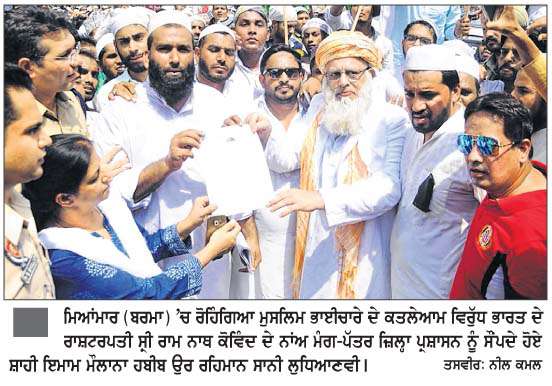 ਮਿਆਂਮਾਰ (ਬਰਮਾ) 'ਚ ਰੋਹਿੰਗਿਆ ਮੁਸਲਿਮ ਭਾਈਚਾਰੇ ਦੇ ਕਤਲੇਆਮ ਵਿਰੁੱਧ ਭਾਰਤ ਦੇ
ਰਾਸ਼ਟਰਪਤੀ ਸ੍ਰੀ ਰਾਮ ਨਾਥ ਕੋਵਿੰਦ ਦੇ ਨਾਂਅ ਮੰਗ-ਪੱਤਰ ਜ਼ਿਲ੍ਹਾ ਪ੍ਰਸ਼ਾਸਨ ਨੂੰ ਸੌਂਪਦੇ ਹੋਏ
ਸ਼ਾਹੀ ਇਮਾਮ ਮੌਲਾਨਾ ਹਬੀਬ ਉਰ ਰਹਿਮਾਨ ਸਾਨੀ ਲੁਧਿਆਣਵੀ। ਤਸਵੀਰ: ਨੀਲ ਕਮਲ